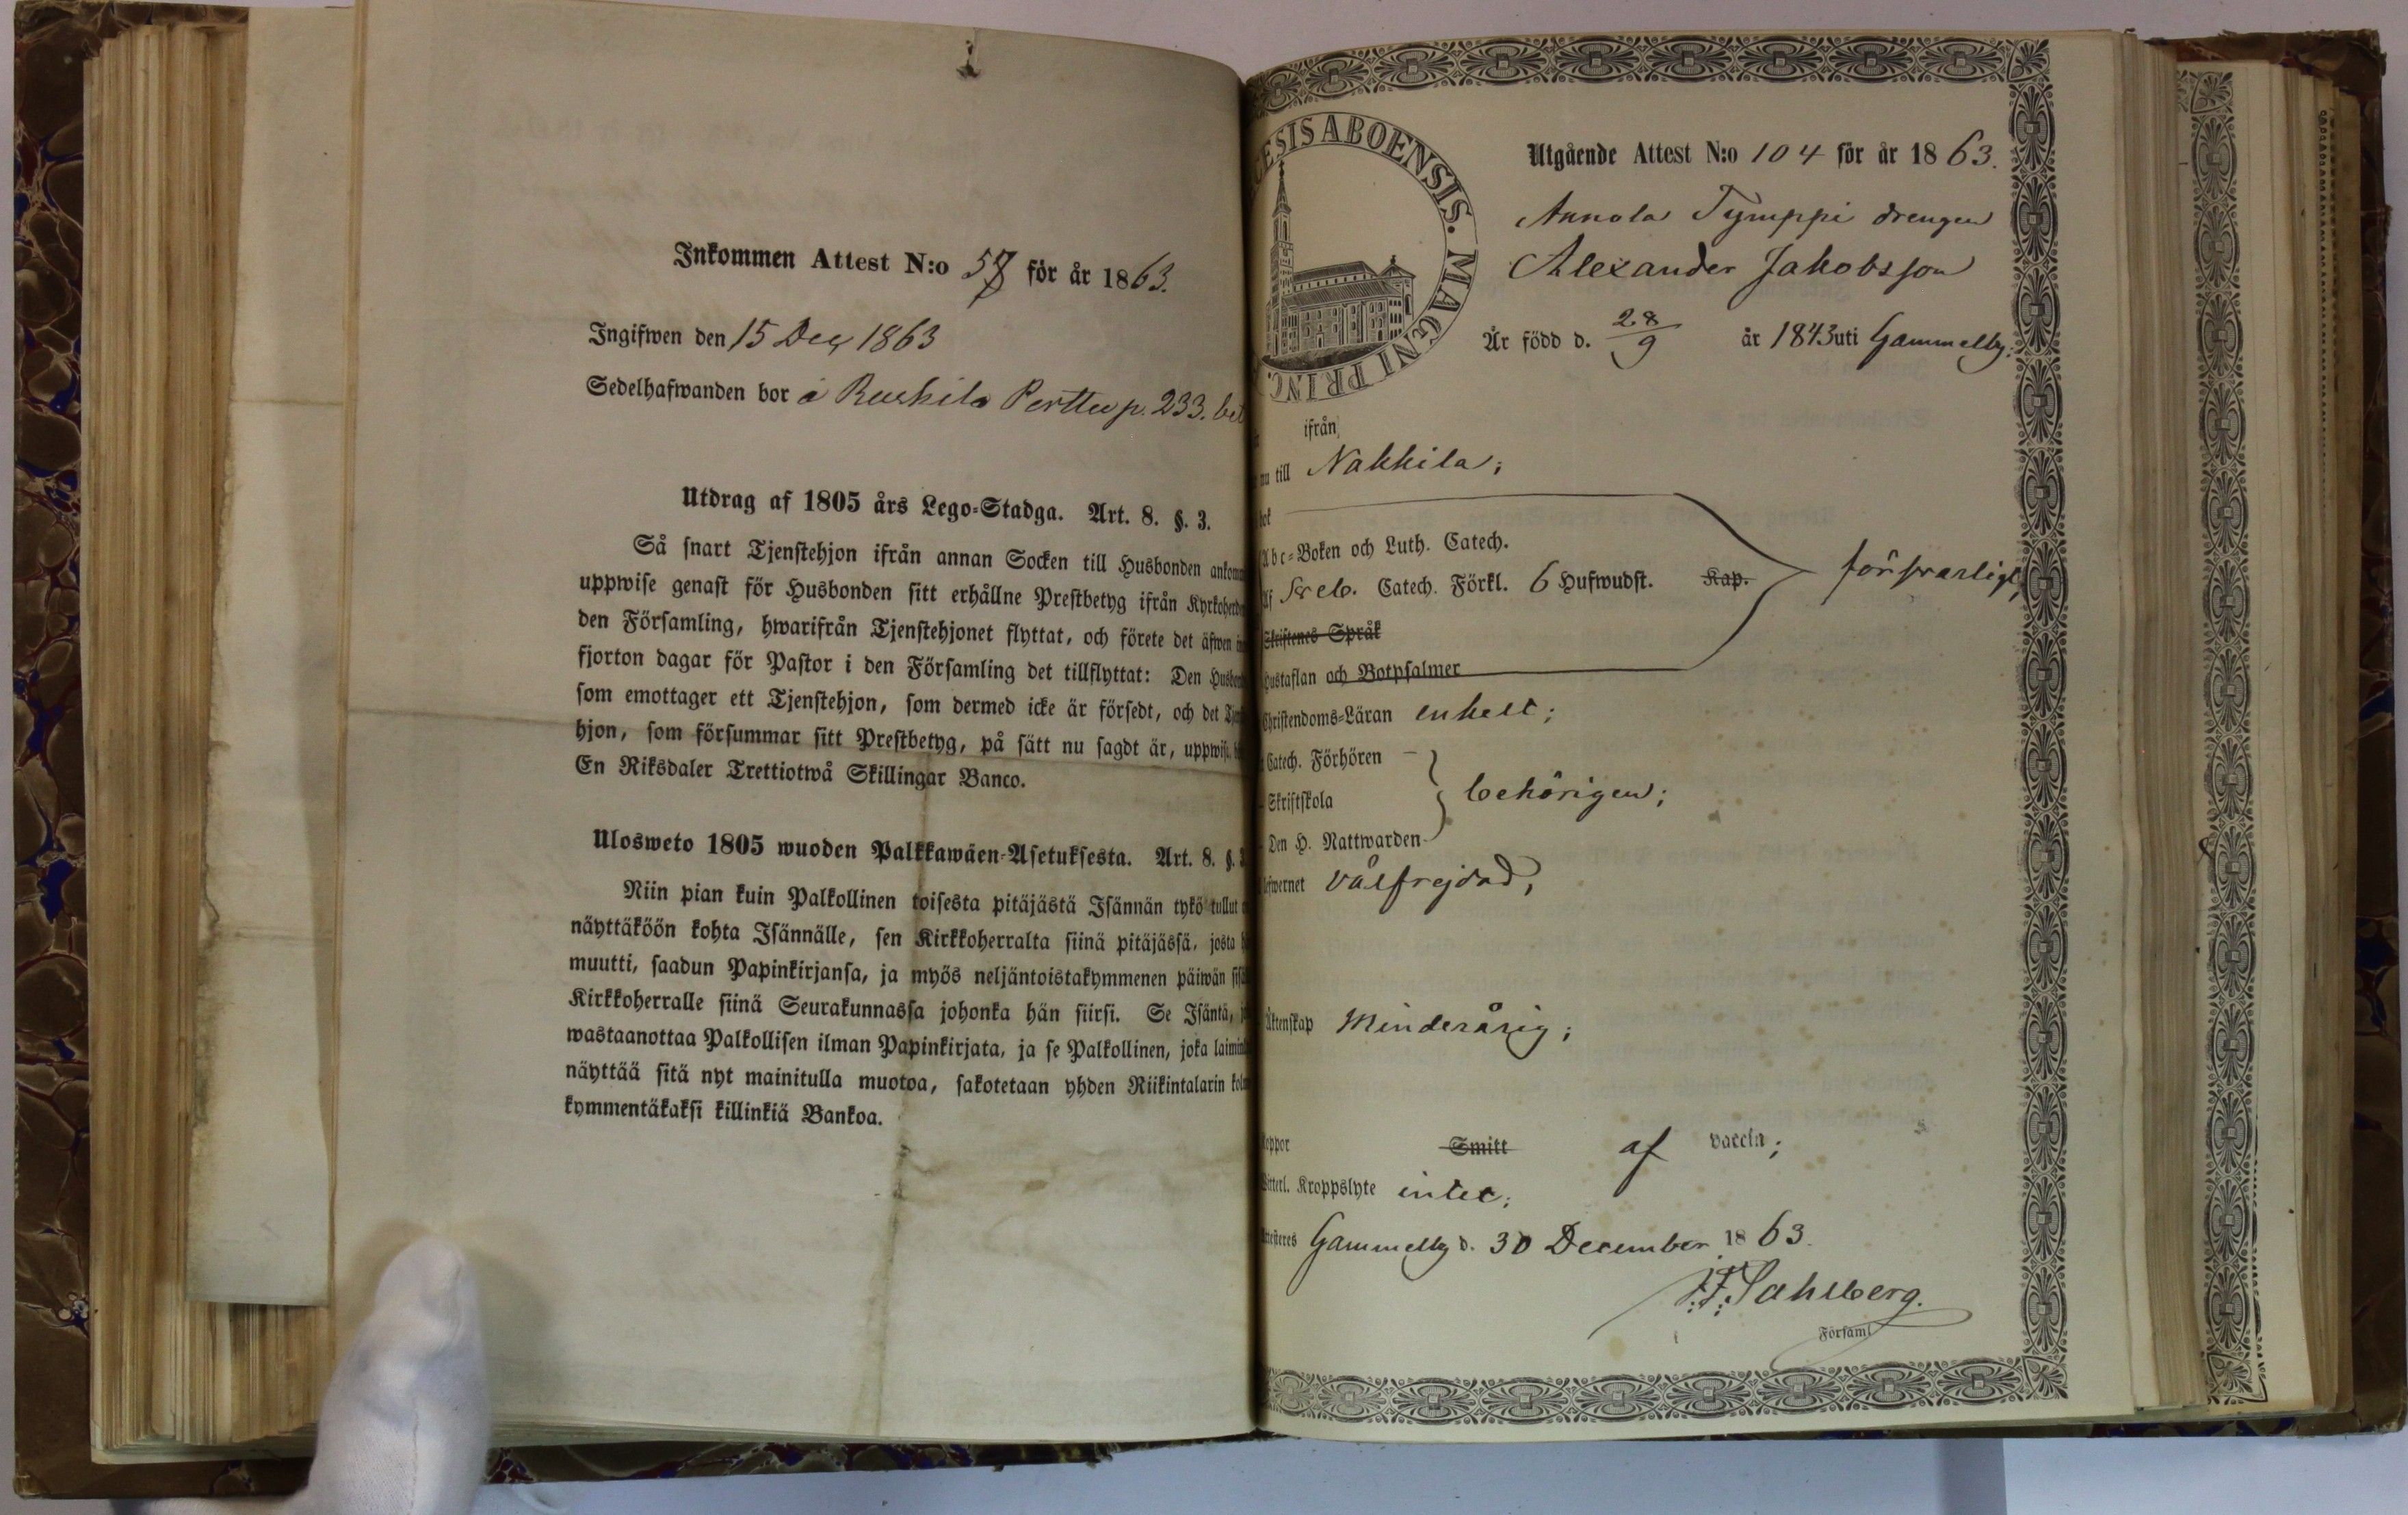 Inkommen Attest N:o 57 för år 1863.
Ingifwen den 15 Dec 1863
Sedelhafwanden bor å Ruskila Perttu p. 233. bet
Utdrag af 1805 års Lego-Stadga. Art. 8. §. 3.
Så snart Tjenstehjon ifrån annan Socken till Husbonden ankom
uppwise genast för Husbonden sitt erhållne Prestbetyg ifrån Kyrkoherd
den Församling, hwarifrån Tjenstehjonet flyttat, och förete det äfwen
fjorton dagar för Pastor i den Församling det tillflyttat: Den Husbon
som emottager ett Tjenstehjon, som dermed icke är försedt, och det Tjen
hjon, som försummar sitt Prestbetyg, på sätt nu sagdt är, uppwis
En Riksdaler Trettiotwå Skillingar Banco.
Ulosweto 1805 wuoden Palkkawäen-Asetuksesta. Art. 8. §. 3
Niin pian kuin Palkollinen toisesta pitäjästä Isännän tykö tullut
näyttäköön kohta Isännälle, sen Kirkkoherralta siinä pitäjässä, josta
muutti, saadun Papinkirjansa, ja myös neljäntoistakymmenen päiwän sis
Kirkkoherralle siinä Seurakunnassa johonka hän siirsi. Se Isäntä,
wastaanottaa Palkollisen ilman Papinkirjata, ja se Palkollinen, joka laimin
näyttää sitä nyt mainitulla muotoa, sakotetaan yhden Riikintalarin kolm
kymmentäkaksi killinkiä Bankoa.
ESIS ABOENSIS. MAGNI PRINC.
Utgående Attest N:o 104 för år 1863.
Annola Tymppi drengen
Alexander Jakobsson
Är född d. 28/9 år 1843 uti Gammelby;
ifrån
nu till Nakkila;
bok
Abc-Boken och Luth. Catech.
af Sveb. Catech. Förkl. 6 Hufwudst. Kap. försvarligt,
Skriftenes Språk
Hustaflan och Botpsalmer
Christendoms-Läran enkelt;
Catech. Förhören
Skriftskola behörigen;
Den H. Nattwarden
efwernet välfrejdad,
Äktenskap Minderårig;
koppor Smitt af vaccin;
Witterl. Kroppslyte intet;
Attesteres Gammelby d. 30 December 1863.
F. F. Sahlberg.
Församl